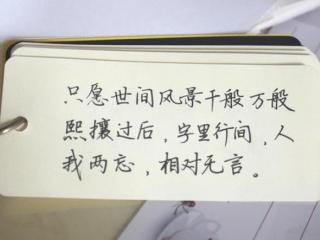 只愿世间风景千般万般
熙攘过后，字里行间，人
我两忘，相对无言。